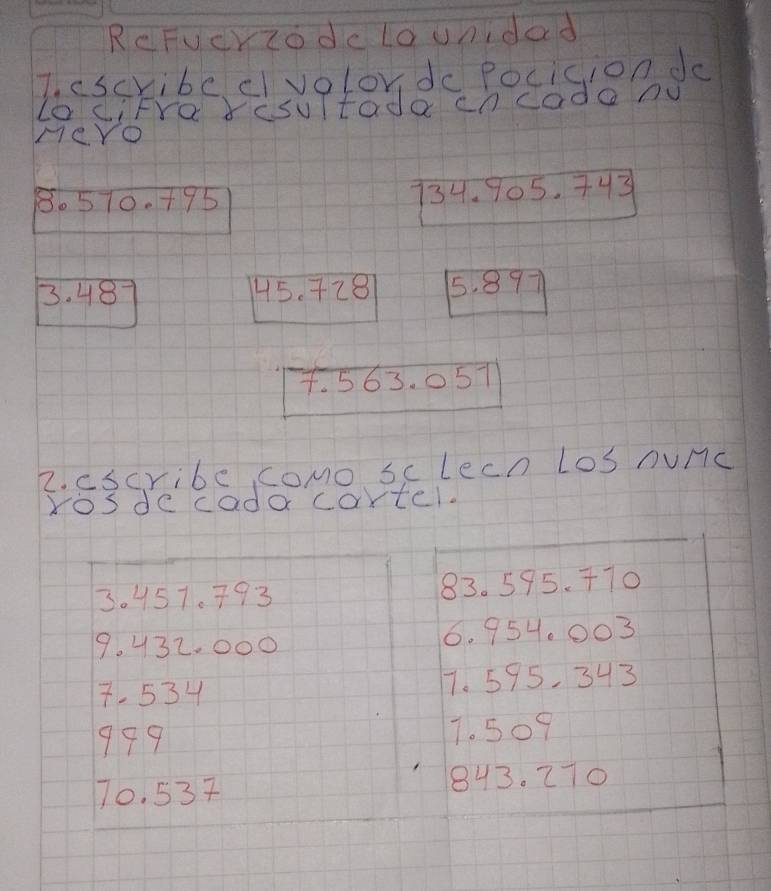 ReFuerzo de La unidad
1. escribe el valor de Pocicion de
La ciFra resultada en cada nu
Mero
8.510.795 134.905.743
3.481 45.728 5.891
7.563.051
2. escribe como se Leen Los nuMe
ros de cada cartel.
3.451.793 83.595.710
9.432.000 6.954.003
7.534 1.595.343
999 1.509
10.537 843.210